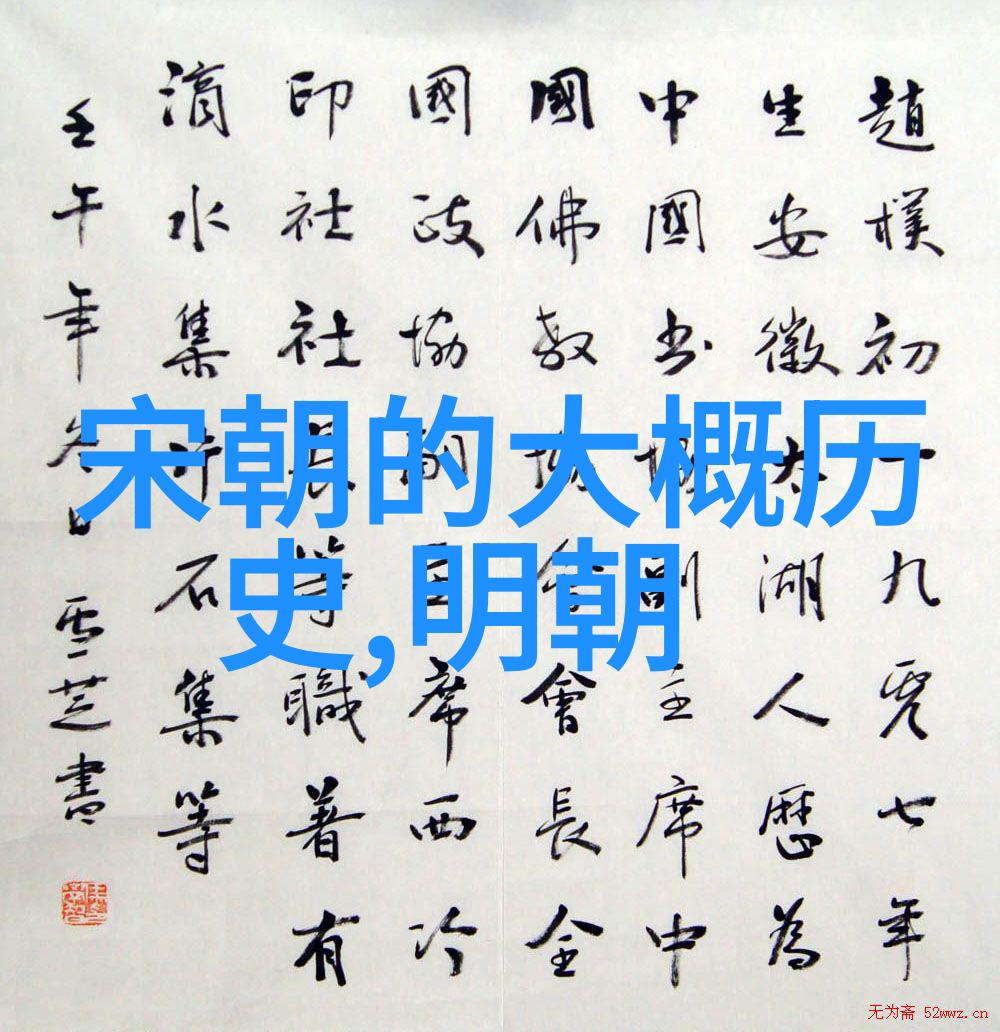 宋朝的大概历
史,明朝
趙樸初一九零七年
生安徽太湖人歷為
中國书協副主席中
國佛教協會會長全
國政協副主席西泠
印社社長等職著有
滴水集片石集等
壬午年冬日雪芝書
无为斋 52wwz.cn